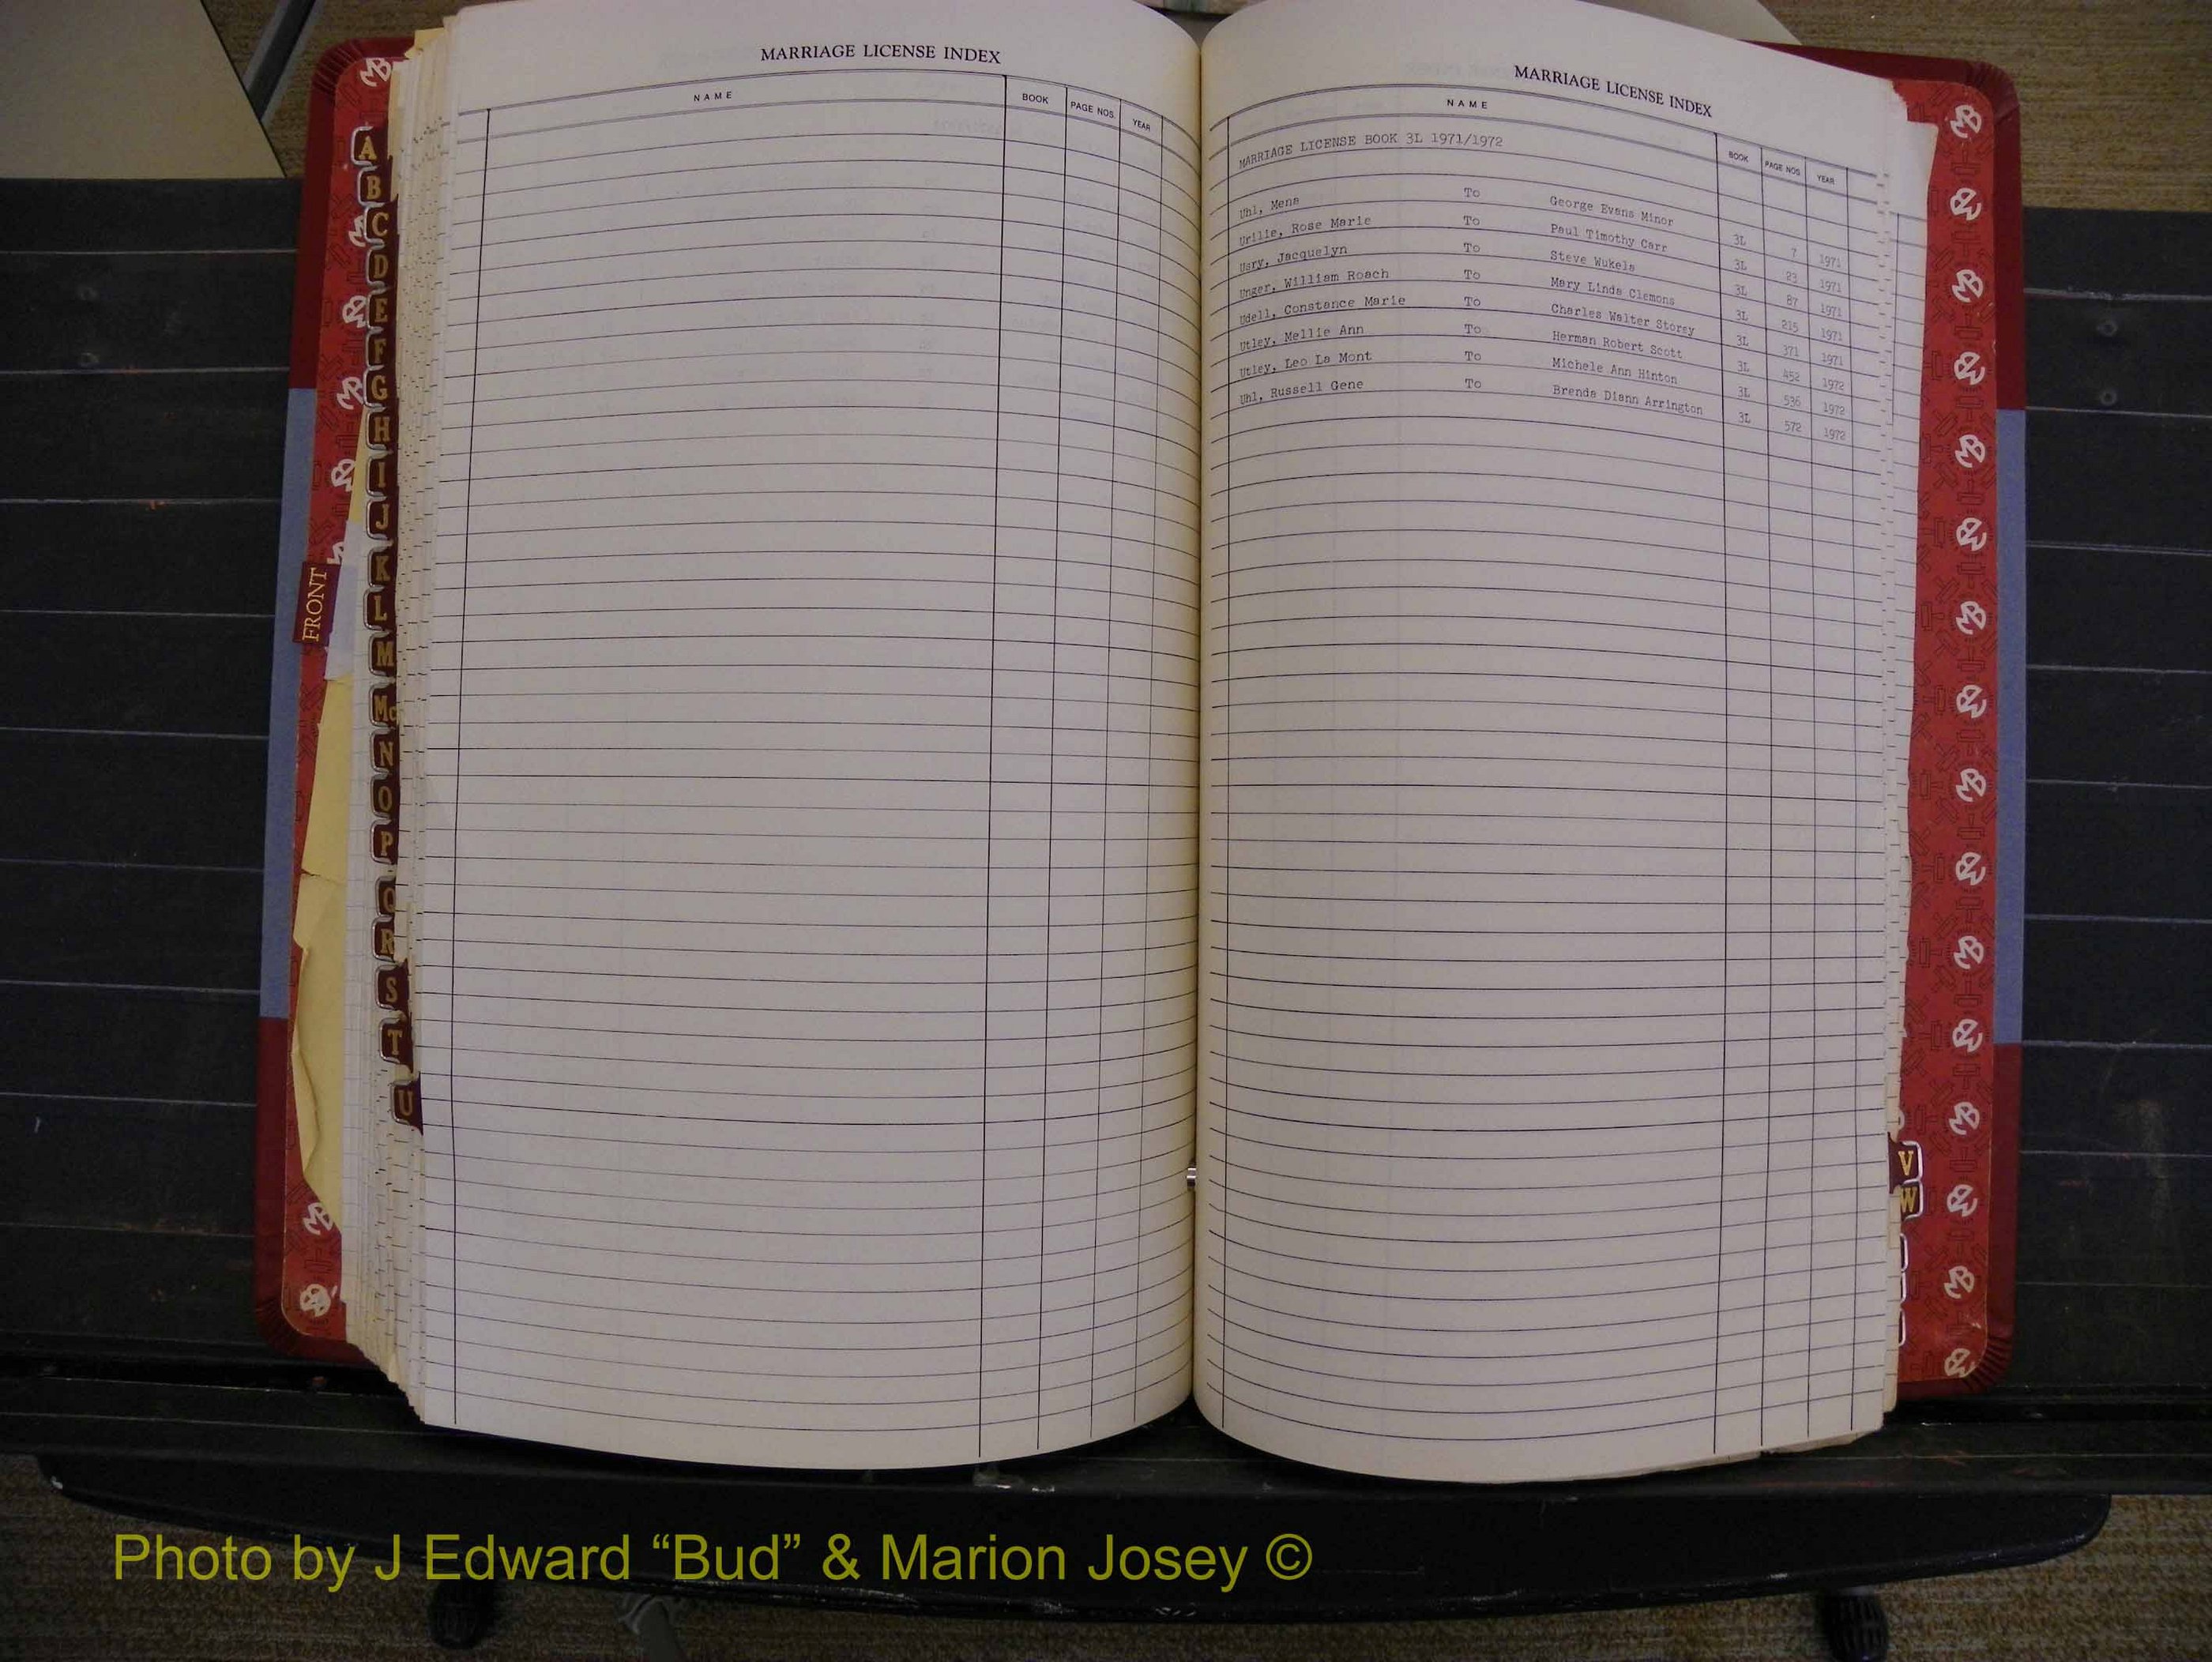 MARRIAGE LICENSE INDEX
NAME BOOK PAGE NOS. YEAR
A
B
C
D
E
F
G
H
I
J
K
L
M
Mc
N
O
P
Q
R
S
T
U
FRONT
MARRIAGE LICENSE INDEX
NAME BOOK PAGE NOS. YEAR
MARRIAGE LICENSE BOOK 3L 1971/1972
Uhl, Mena To George Evans Minor 3L 7 1971
Urilie, Rose Marie To Paul Timothy Carr 3L 23 1971
Usry, Jacquelyn To Steve Wukela 3L 87 1971
Unger, William Roach To Mary Linda Clemons 3L 215 1971
Udell, Constance Marie To Charles Walter Storey 3L 371 1971
Utley, Mellie Ann To Herman Robert Scott 3L 452 1972
Utley, Leo La Mont To Michele Ann Hinton 3L 536 1972
Uhl, Russell Gene To Brenda Diann Arrington 3L 572 1972
V
W
Photo by J Edward “Bud” & Marion Josey ©